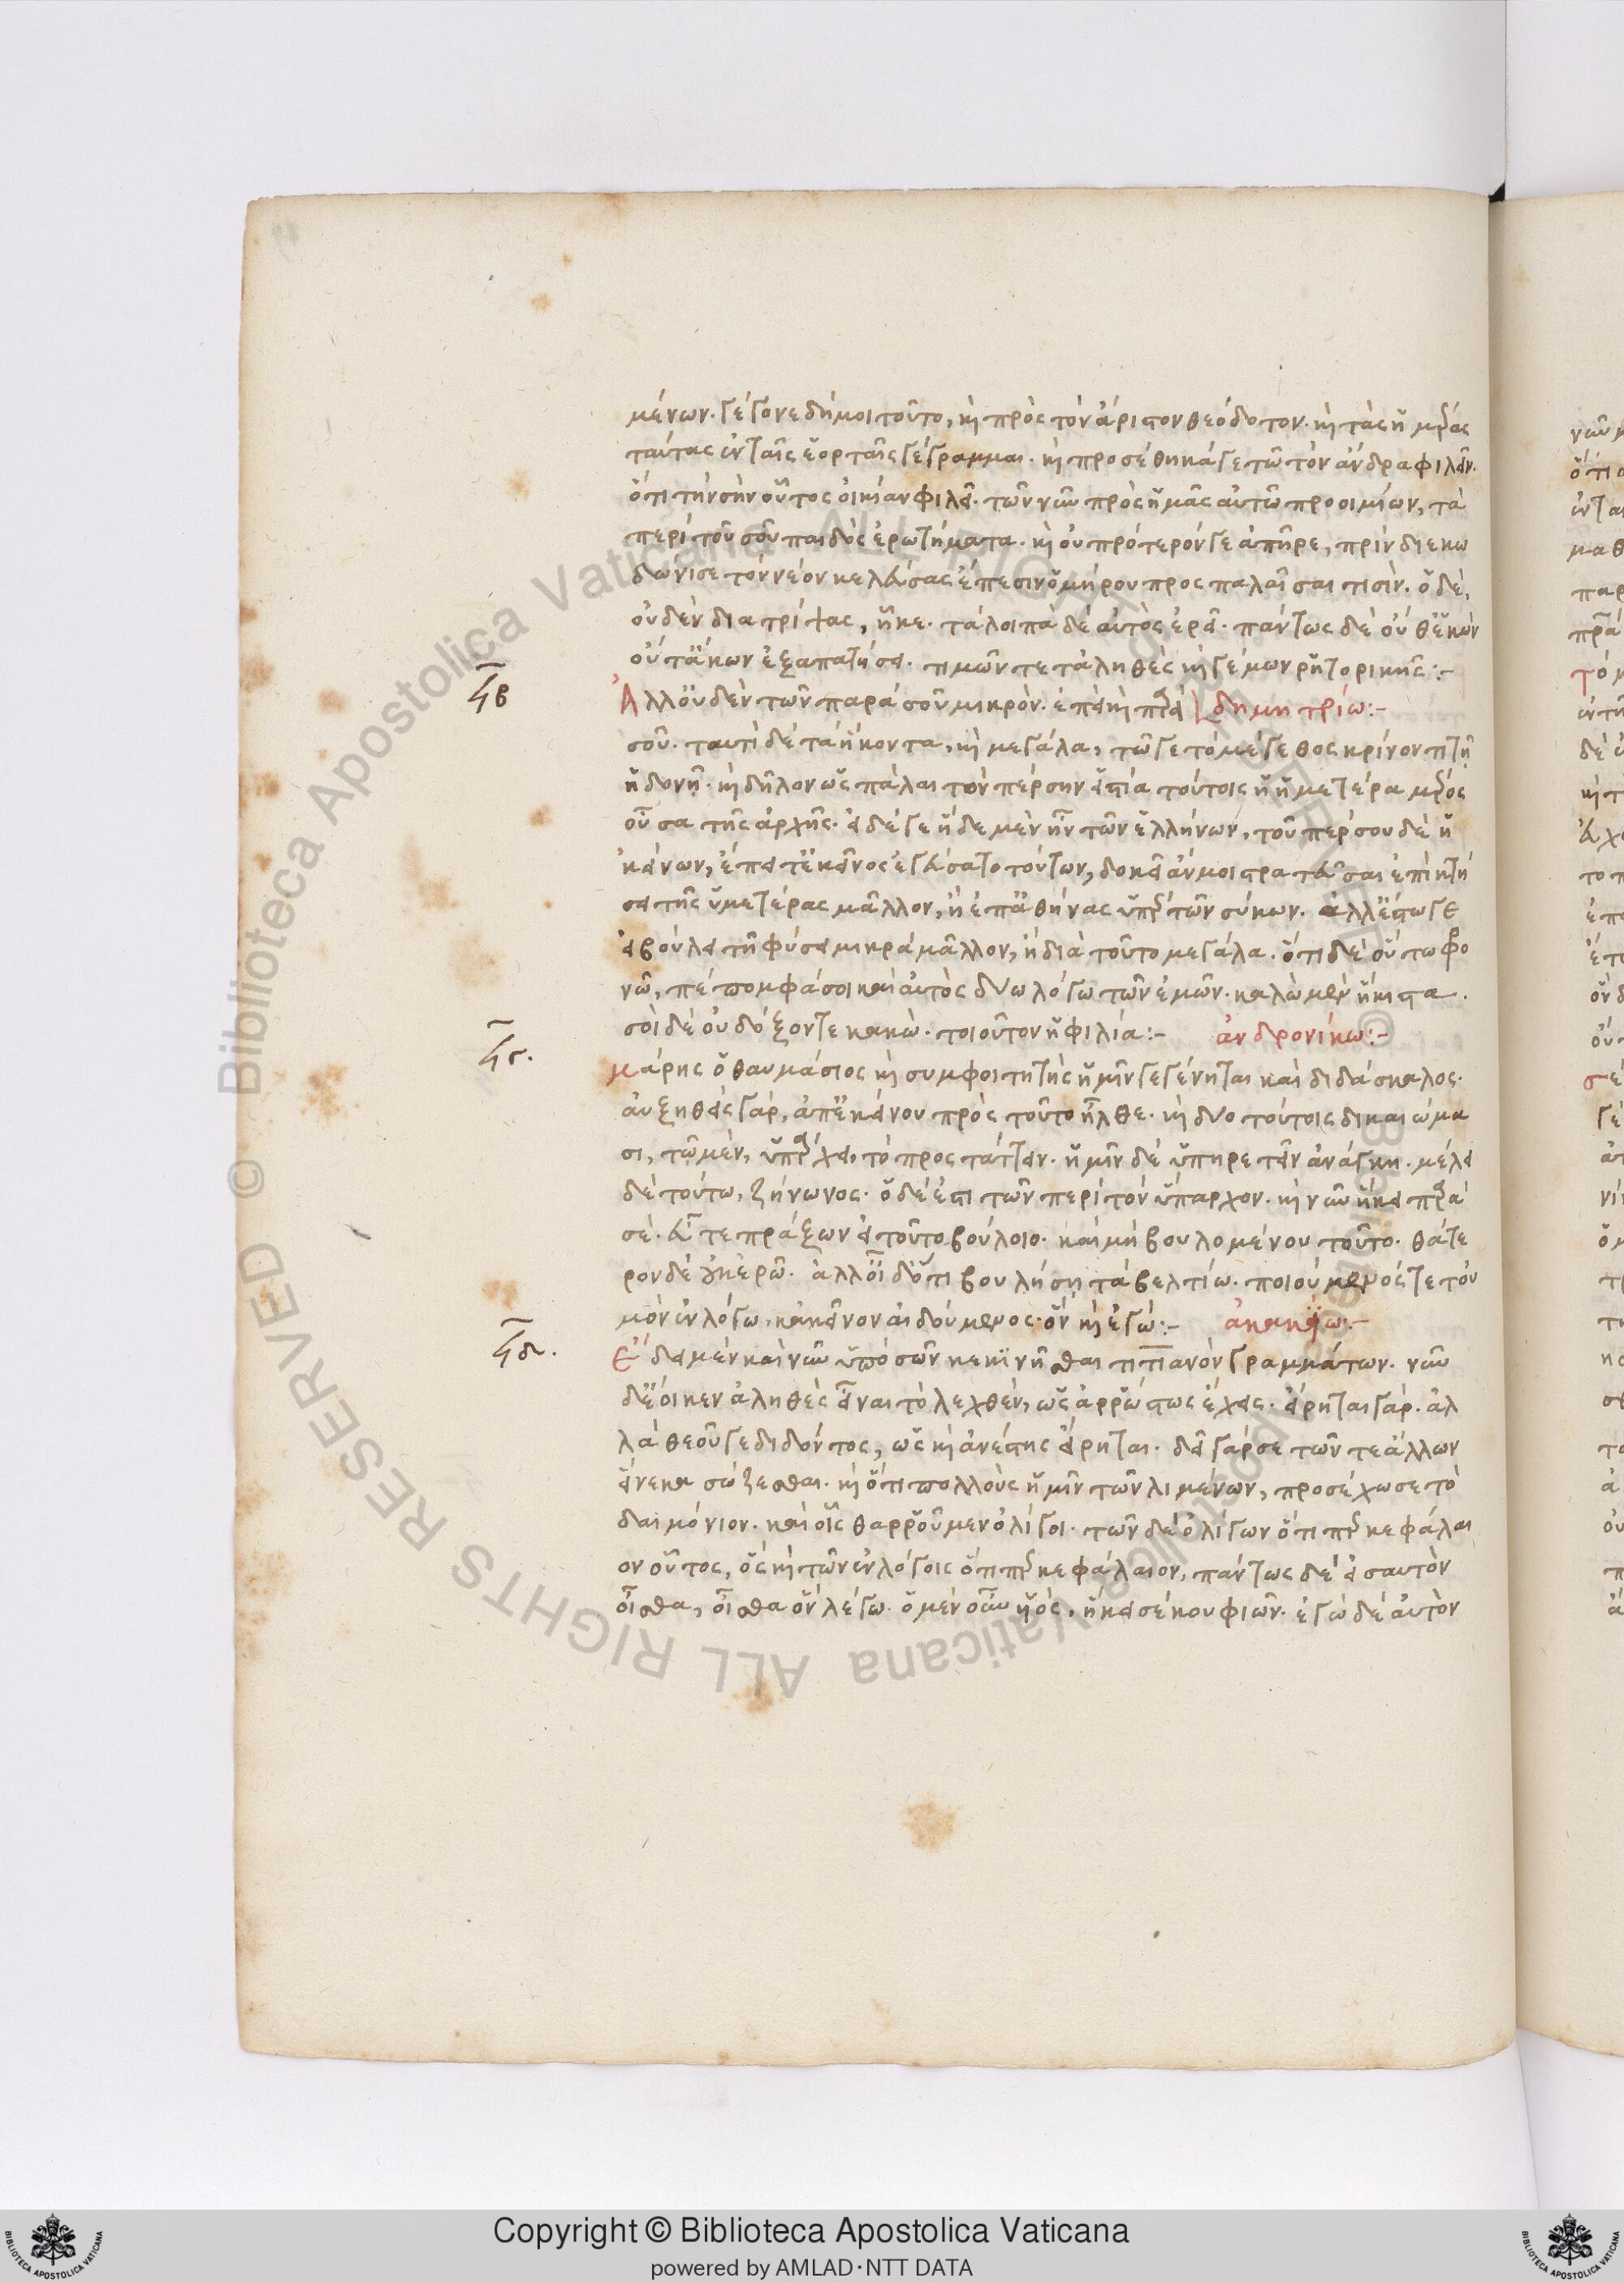 μένων. γέγονε δή μοι τοῦτο, κỳ πρὸς τὸν ἄριστον θεόδοτον. κỳ τὰς ἡμέρας
ταύτας ἐν ταῖς ἑορταῖς γέγραμμαι. κỳ προσέθηκά γε τῶ τὸν ἄνδρα φιλεῖν.
ὅτι τὴν σὴν οὗτος οἰκίαν φιλεῖ. τῶν νῦν πρὸς ἡμᾶς αὐτῶ προοιμίων, τὰ
περὶ τοῦ σοῦ παιδὸς ἐρωτήματα. κỳ οὐ πρότερόν γε ἀπῆρε, πρὶν διεκω
δώνισε τὸν νέον κελεύσας ἔπεσιν ὁμήρου προσπαλαῖσαι τισίν. ὁ δὲ,
οὐδὲν διατρίψας, ἧκε. τὰ λοιπὰ δὲ αὐτὸς ἐρεῖ. πάντως δὲ οὐθ' ἑκὼν
οὔτ' ἄκων ἐξαπατήσει. τιμῶν τε τἀληθὲς κỳ γέμων ῥητορικῆς:-
ϟβ
Ἀλλ' οὐδὲν τῶν παρὰ σοῦ μικρὸν. ἐπεὶ κỳ παρὰ δημητρίω:-
σοῦ. ταυτὶ δὲ τὰ ἥκοντα, κỳ μεγάλα, τῶ γε τὸ μέγεθος κρίνοντι τῆ
ἡδονῆ. κỳ δῆλον ὡς πάλαι τὸν πέρσην εἱστία τούτοις ἡ ἡμετέρα μέρος
οὖσα τῆς ἀρχῆς. εἰ δέ γε ἥδε μὲν ἦν τῶν ἑλλήνων, τοῦ πέρσου δὲ ἡ
ἐκείνων, ἔπειτ' ἐκεῖνος ἐγεύσατο τούτων, δοκεῖ ἄν μοι στρατεῦσαι ἐπὶ κτή
σει τῆς ὑμετέρας μᾶλλον, ἢ ἐπ' ἀθήνας ὑπὲρ τῶν σύκων. ἀλλ' ἔστω γε
εἰ βούλει τῆ φύσει μικρὰ μᾶλλον, ἢ διὰ τοῦτο μεγάλα. ὅτι δὲ οὕτω φρο
νῶ, πέπομφά σοι καὶ αὐτὸς δύω λόγω τῶν ἐμῶν. καλὼ μὲν ἥκιστα.
σοὶ δὲ οὐ δόξοντε κακώ. τοιοῦτον ἡ φιλία:- ἀνδρονίκω:-
ϟγ.
μάρης ὁ θαυμάσιος κỳ συμφοιτητὴς ἡμῖν γεγένηται καὶ διδάσκαλος.
αὐξηθεὶς γάρ, ἀπ' ἐκείνου πρὸς τοῦτο ἦλθε. κỳ δύο τούτοις δικαιώμα
σι, τῶ μὲν, ὑπάρχει, τὸ προστάττειν. ἡμῖν δὲ ὑπηρετεῖν ἀνάγκη. μέλει
δὲ τούτω, ζήνωνος. ὁ δέ ἐστι τῶν περὶ τὸν ὕπαρχον. κỳ νῦν ἥκει παρὰ
σέ. εὖ τε πράξων εἰ τοῦτο βούλοιο. καὶ μὴ βουλομένου τοῦτο. θάτε
ρον δὲ οὐκ ἐρῶ. ἀλλ' οἶδ' ὅτι βουλήση τὰ βελτίω. ποιούμενός τε τὸν
μὸν ἐν λόγω, κἀκεῖνον αἰδούμενος. ὃν κỳ ἐγώ:- ἀκακίω:-
ϟδ.
Ἔδει μὲν καὶ νῦν ὑπὸ σῶν κεκινῆσθαι τιτιανὸν γραμμάτων. νῦν
δ' ἔοικεν ἀληθὲς εἶναι τὸ λεχθὲν, ὡς ἀρρώστως ἔχεις. εἴρηται γάρ. ἀλ
λὰ θεοῦ γε διδόντος, ὡς κỳ ἀνέστης εἴρηται. δεῖ γάρ σε τῶν τε ἄλλων
εἵνεκα σώζεσθαι. κỳ ὅτι πολλοὺς ἡμῖν τῶν λιμένων, προσέχωσε τὸ
δαιμόνιον. καὶ οἷς θαρροῦμεν ὀλίγοι. τῶν δὲ ὀλίγων ὅτι περ κεφάλαι
ον οὗτος, ὃς κỳ τῶν ἐν λόγοις ὅτι περ κεφάλαιον, πάντως δὲ εἰ σαυτὸν
οἶσθα, οἶσθα ὃν λέγω. ὁ μὲν οὖν υἱός, ἥκει σὲ κουφιῶν. ἐγὼ δὲ αὐτὸν
Copyright © Biblioteca Apostolica Vaticana
powered by AMLAD·NTT DATA